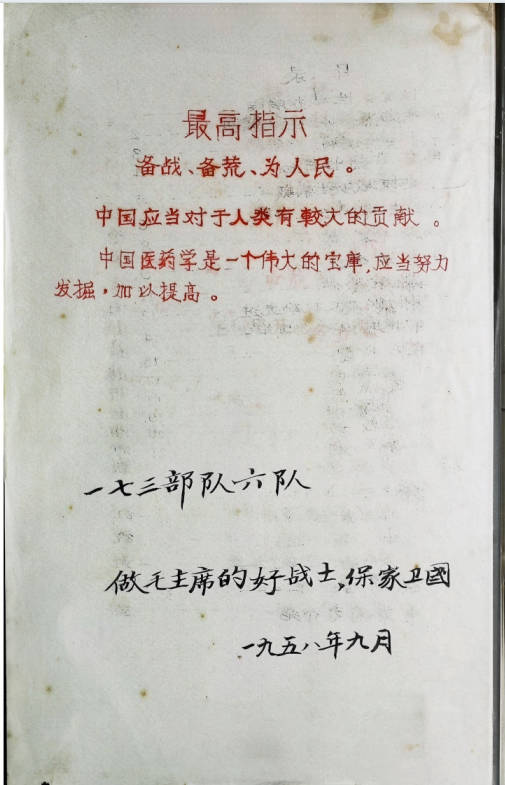 最高指示
备战、备荒、为人民。
中国应当对于人类有較大的贡献。
中国医药学是一个伟大的宝庫,应当努力
发掘,加以提高。
一七三部队六队
做毛主席的好战士,保家卫國
一九五八年九月